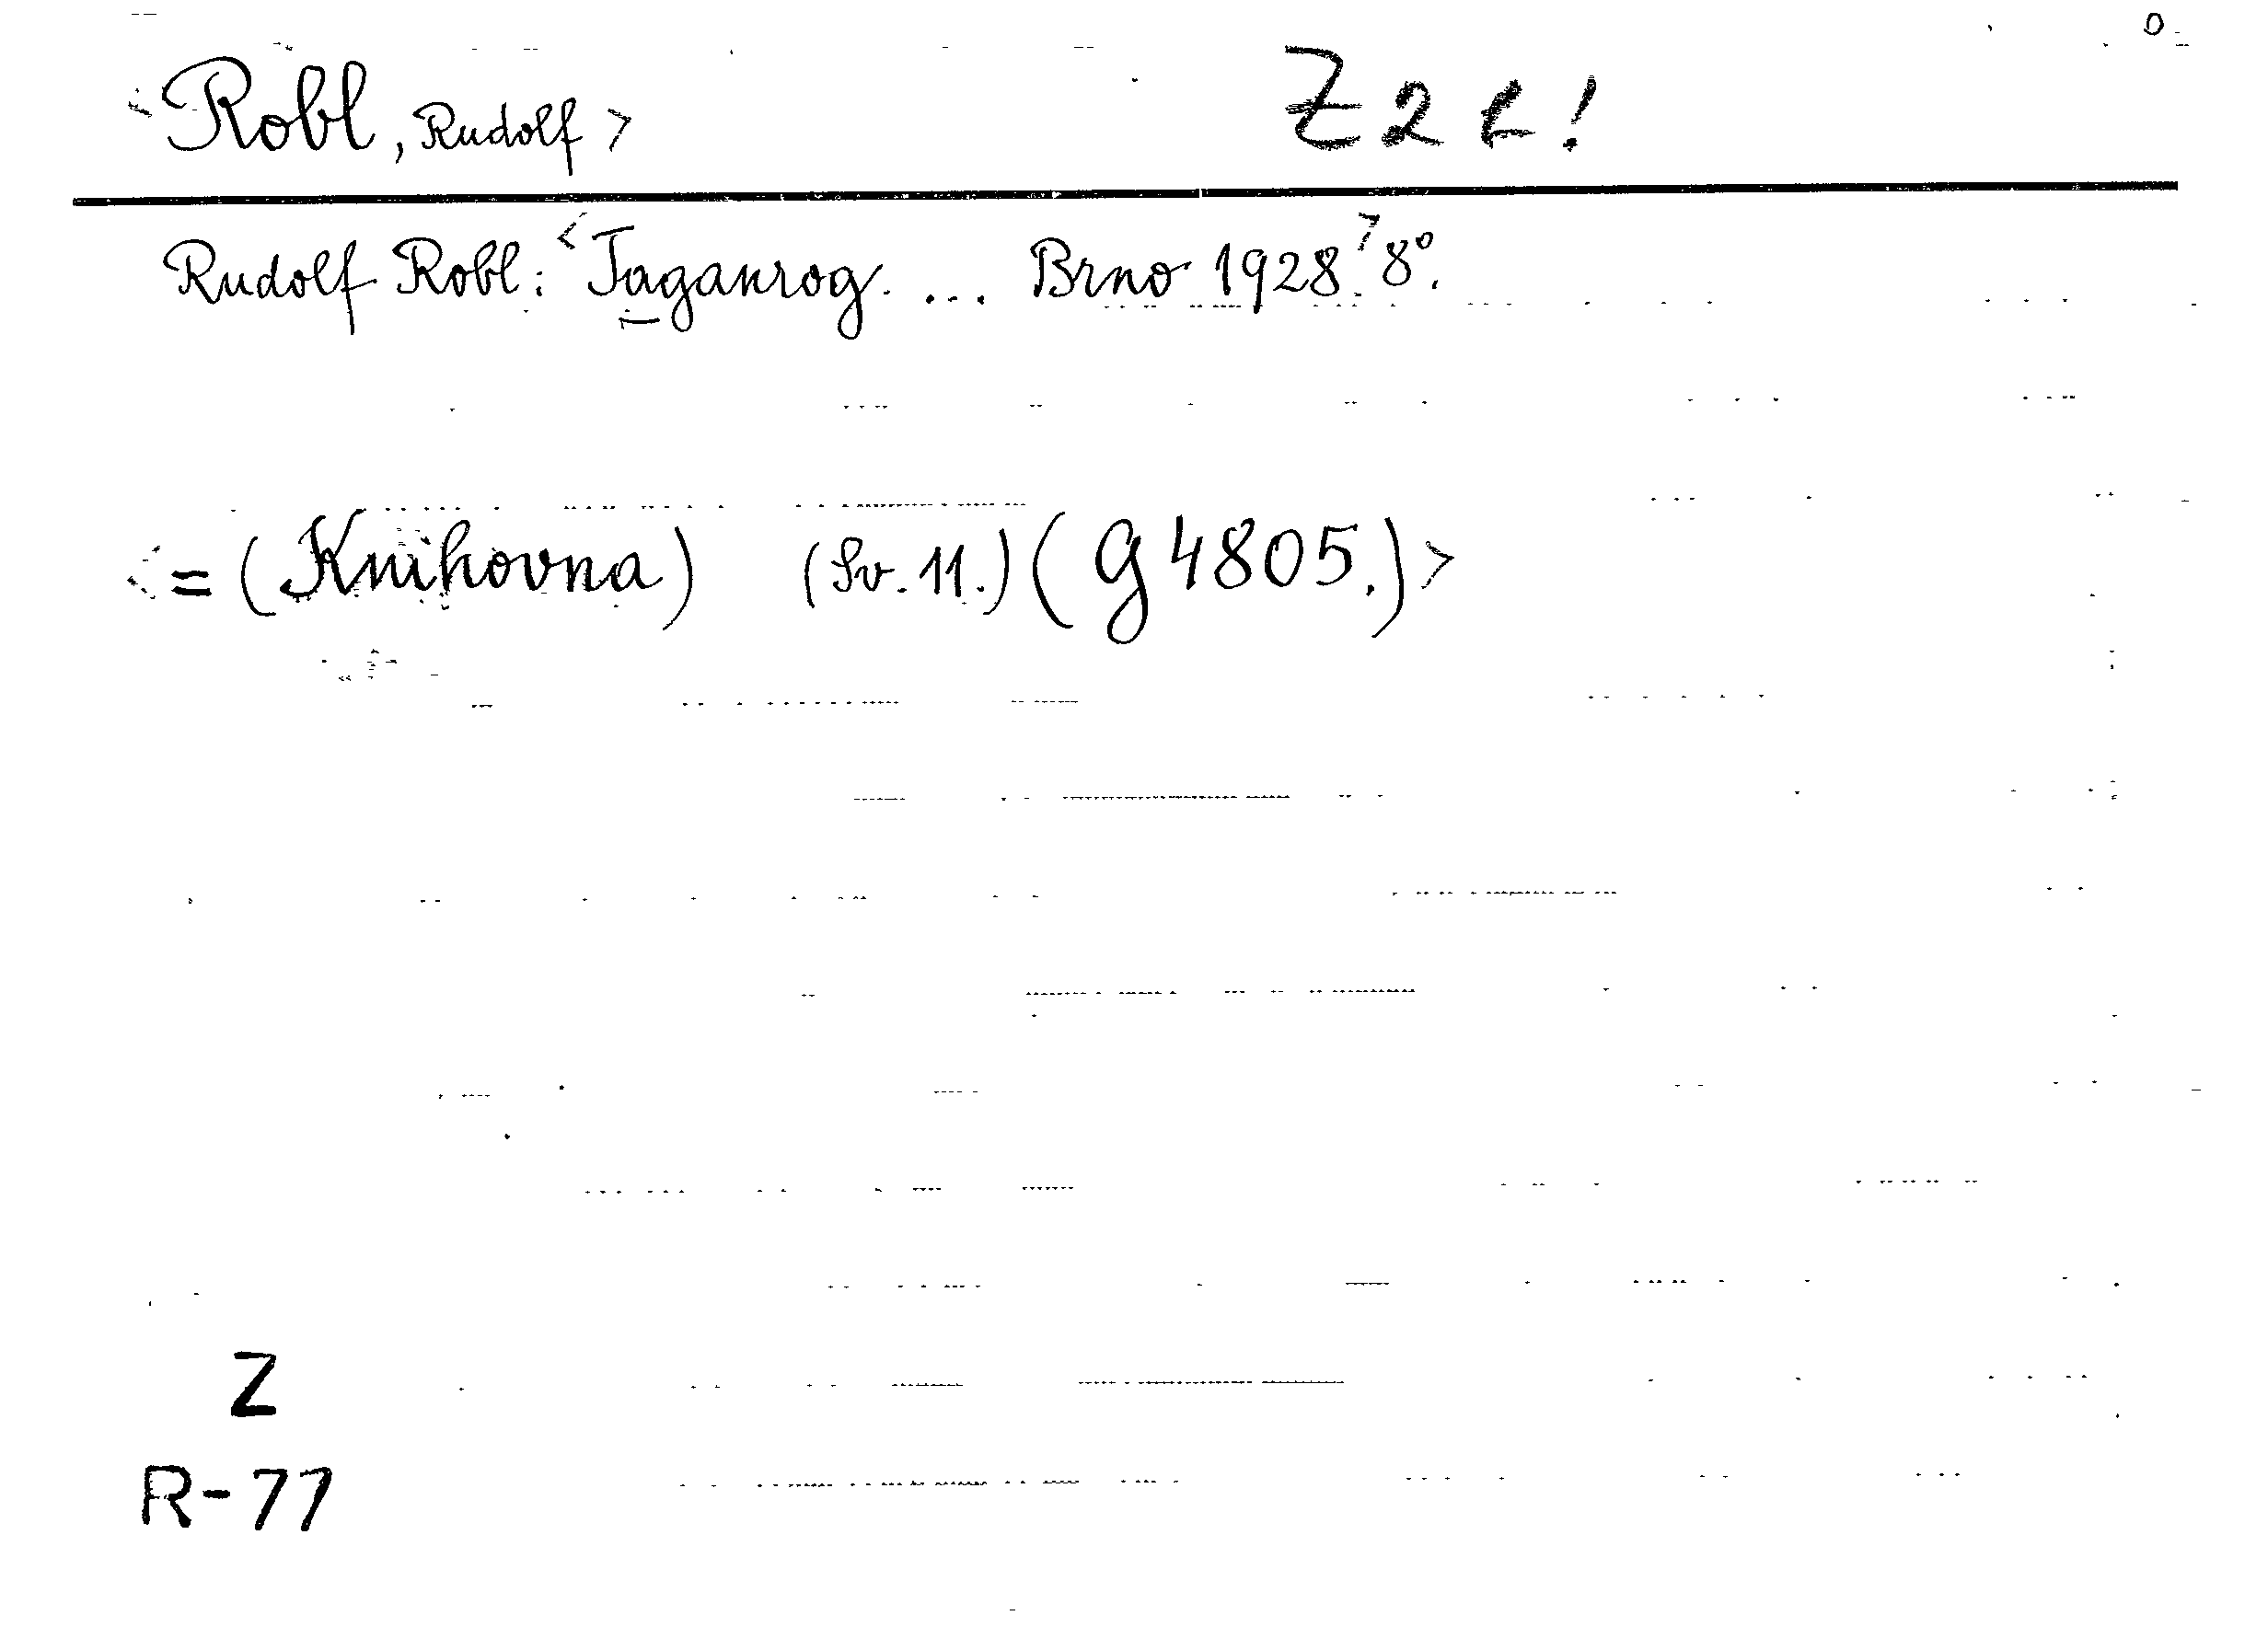 <Robl, Rudolf> Z 2 L!
Rudolf Robl: <Taganrog. ... Brno 1928.> 8°.
<= (Knihovna) (Sv. 11.) (G 4805.)>
Z
R-77